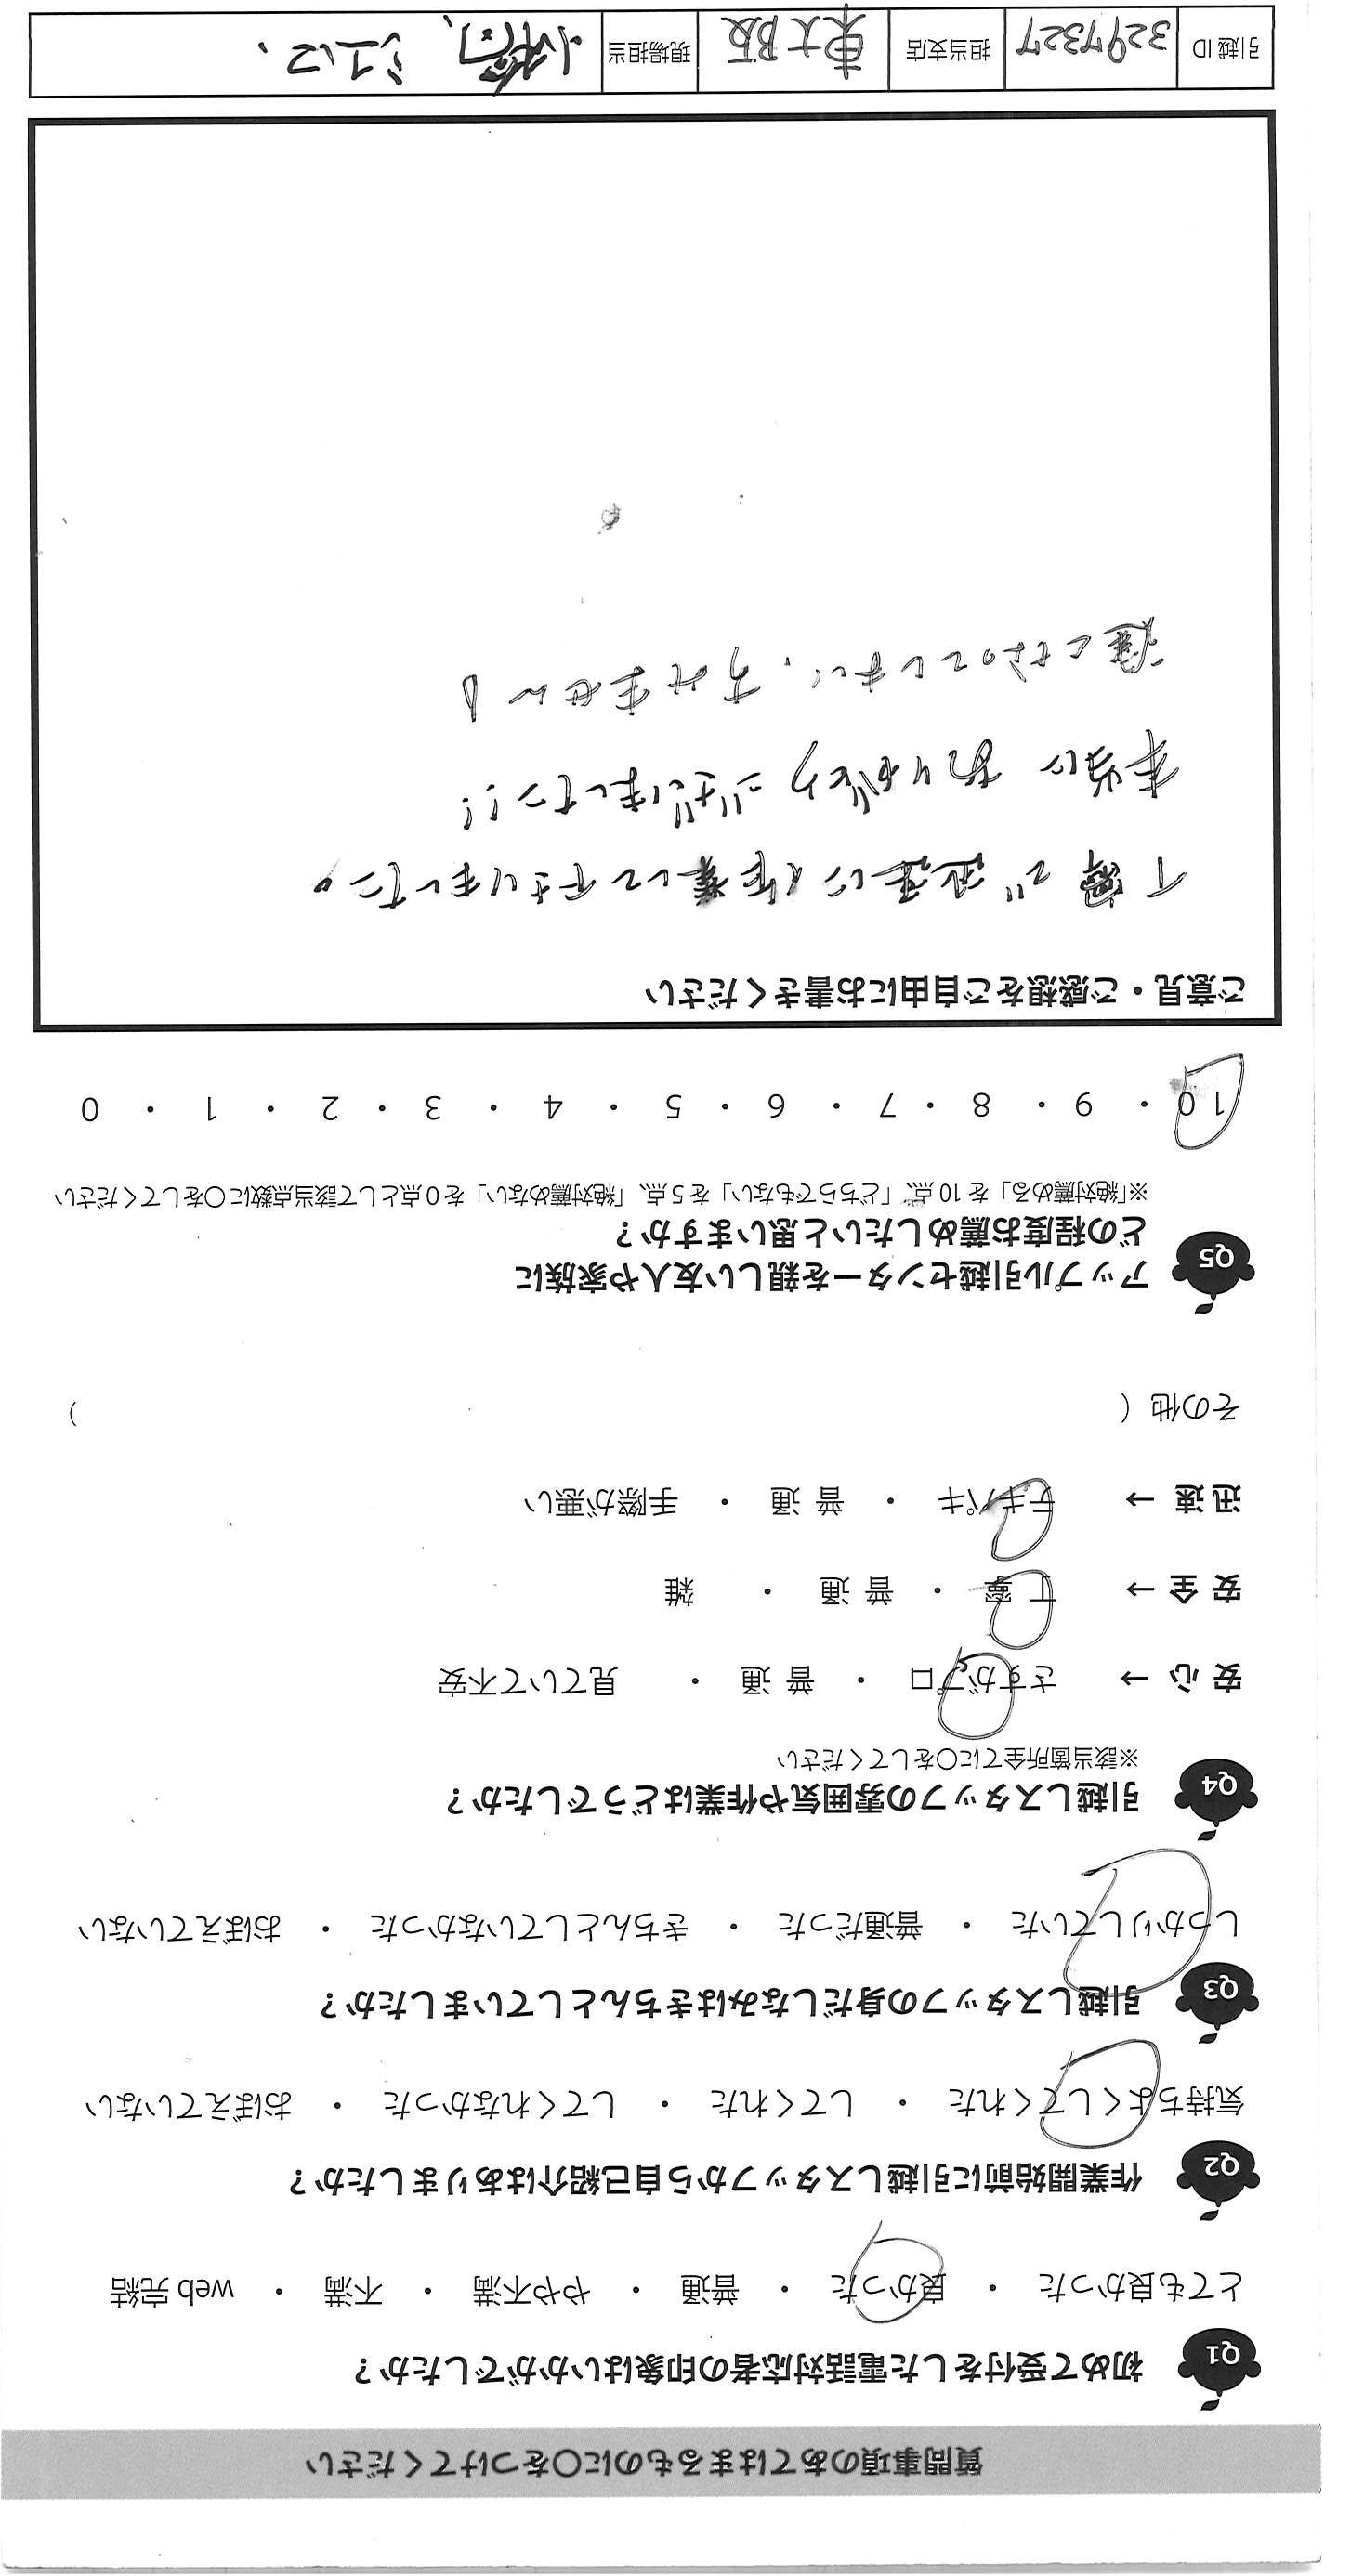 質問事項のあてはまるものに○をつけてください
Q1 初めて受付をした電話対応者の印象はいかがでしたか？
とても良かった ・ 良かった ・ 普通 ・ やや不満 ・ 不満 ・ web 完結
Q2 作業開始前に引越しスタッフから自己紹介はありましたか？
気持ちよくしてくれた ・ してくれた ・ してくれなかった ・ おぼえていない
Q3 引越しスタッフの身だしなみはきちんとしていましたか？
しっかりしていた ・ 普通だった ・ きちんとしていなかった ・ おぼえていない
Q4 引越しスタッフの雰囲気や作業はどうでしたか？
※該当箇所全てに○をしてください
安 心 → さすがプロ ・ 普 通 ・ 見ていて不安
安 全 → 丁 寧 ・ 普 通 ・ 雑
迅 速 → テキパキ ・ 普 通 ・ 手際が悪い
その他（ ）
Q5 アップル引越センターを親しい友人や家族に
どの程度お薦めしたいと思いますか？
※「絶対薦める」を 10 点、「どちらでもない」を 5 点、「絶対薦めない」を 0 点として該当点数に○をしてください
10 ・ 9 ・ 8 ・ 7 ・ 6 ・ 5 ・ 4 ・ 3 ・ 2 ・ 1 ・ 0
ご意見・ご感想をご自由にお書きください
丁寧で迅速に作業して下さりました。
本当にありがとうございました!!
遅くなってしまい、すみません
引越 ID 3297327 担当支店 東大阪 現場担当 小橋、